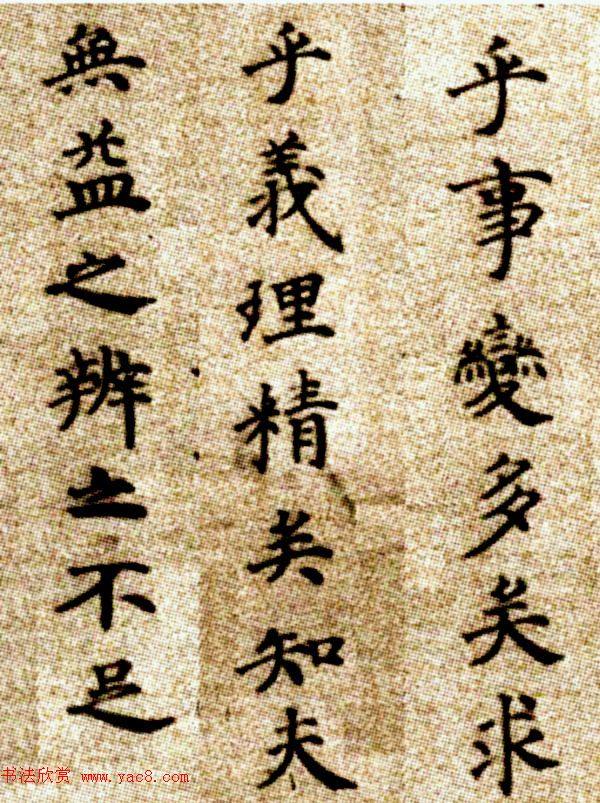 乎事變多矣求
乎義理精矣知夫
與益之辨之不足
书法欣赏 www.yac8.com